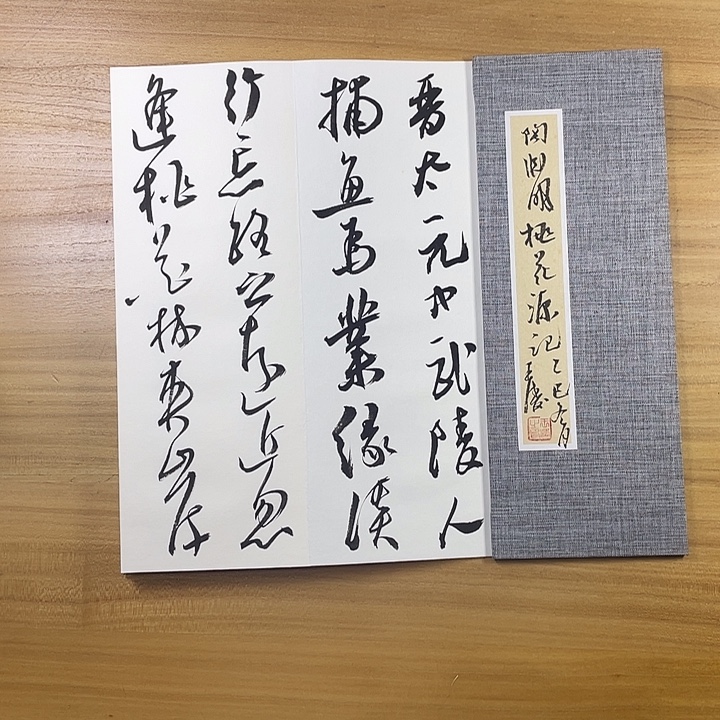 陶渊明桃花源记
乙巳冬月
晋太元中武陵人
捕鱼为業缘溪
行忘路之远近忽
逢桃花林夾岸